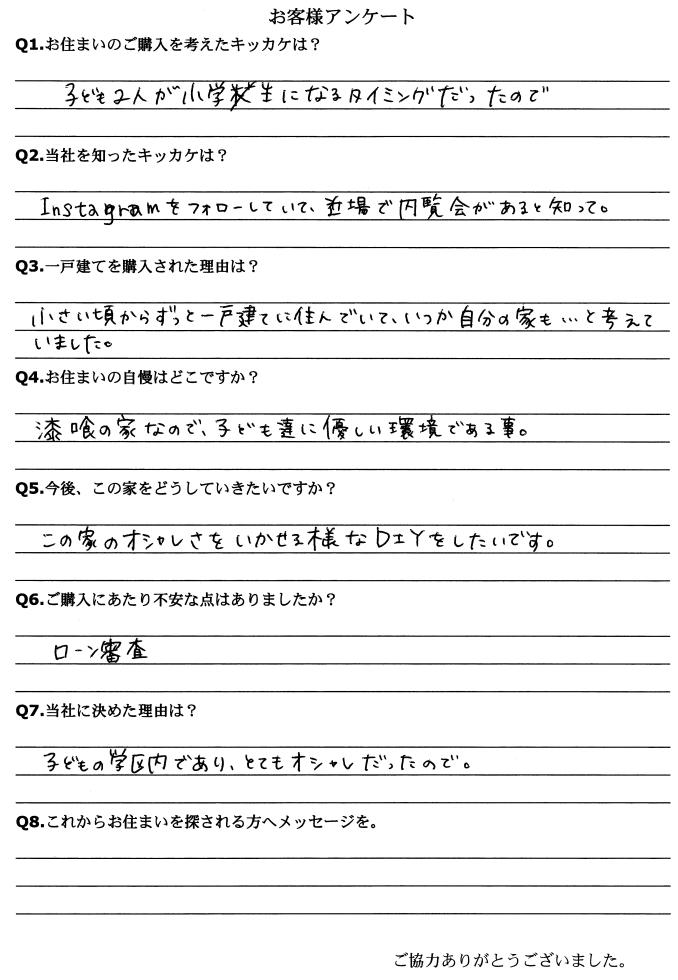 お客様アンケート
Q1.お住まいのご購入を考えたキッカケは？
子ども2人が小学校生になるタイミングだったので
Q2.当社を知ったキッカケは？
Instagramをフォローしていて、近場で内覧会があると知って。
Q3.一戸建てを購入された理由は？
小さい頃からずっと一戸建てに住んでいて、いつか自分の家も…と考えて
いました。
Q4.お住まいの自慢はどこですか？
漆喰の家なので、子ども達に優しい環境である事。
Q5.今後、この家をどうしていきたいですか？
この家のオシャレさをいかせる様なDIYをしたいです。
Q6.ご購入にあたり不安な点はありましたか？
ローン審査
Q7.当社に決めた理由は？
子どもの学区内であり、とてもオシャレだったので。
Q8.これからお住まいを探される方へメッセージを。
ご協力ありがとうございました。